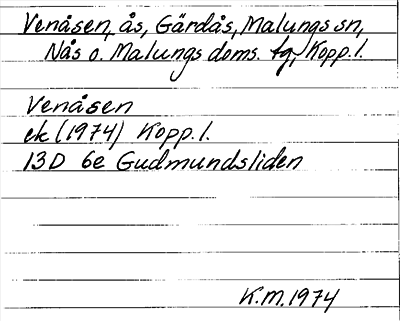 Venåsen, ås, Gärdås, Malungs sn,
Nås o. Malungs doms. tg, Kopp. l.
Venåsen
ek (1974) Kopp. l.
13D 6e Gudmundsliden
K.M. 1974